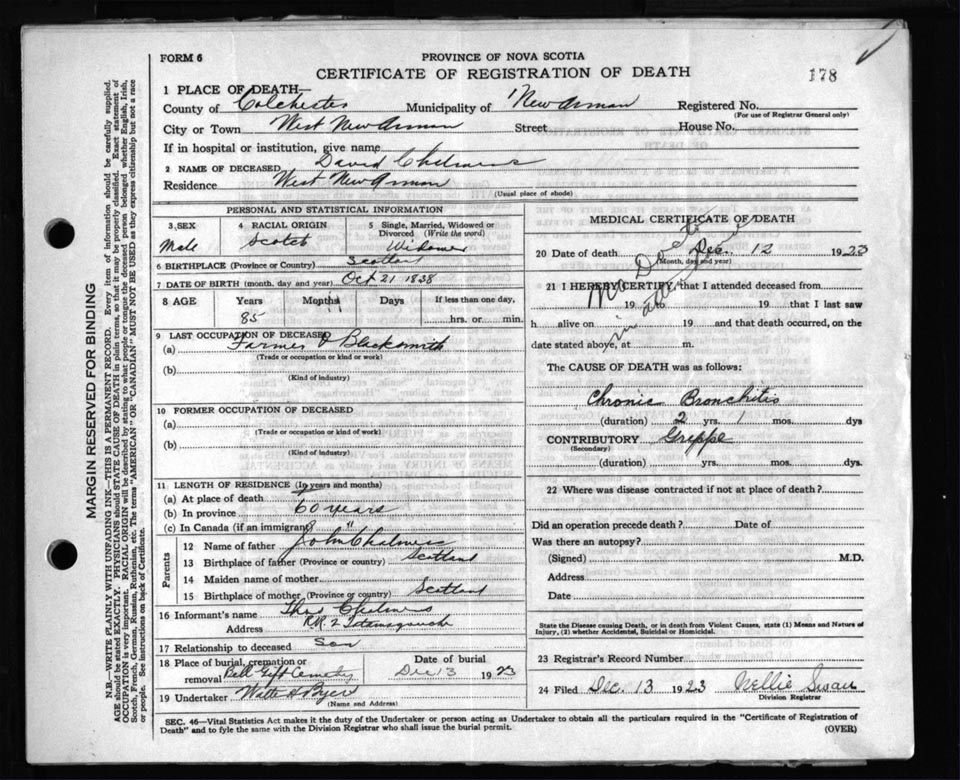 FORM 6
PROVINCE OF NOVA SCOTIA
CERTIFICATE OF REGISTRATION OF DEATH
178
1 PLACE OF DEATH—
County of Colchester Municipality of New Annan Registered No.
(For use of Registrar General only)
City or Town West New Annan Street House No.
If in hospital or institution, give name
2 NAME OF DECEASED David Chalmers
Residence West New Annan
(Usual place of abode)
PERSONAL AND STATISTICAL INFORMATION
3 SEX 4 RACIAL ORIGIN 5 Single, Married, Widowed or Divorced (Write the word)
Male Scotch Widower
6 BIRTHPLACE (Province or Country) Scotland
7 DATE OF BIRTH (month, day and year) Oct 21 1838
8 AGE Years Months Days If less than one day,
85 hrs. or min.
9 LAST OCCUPATION OF DECEASED
(a) Farmer & Blacksmith
(Trade or occupation or kind of work)
(b)
(Kind of industry)
10 FORMER OCCUPATION OF DECEASED
(a)
(Trade or occupation or kind of work)
(b)
(Kind of industry)
11 LENGTH OF RESIDENCE (In years and months)
(a) At place of death
(b) In province 60 years
(c) In Canada (if an immigrant) "
Parents
12 Name of father John Chalmers
13 Birthplace of father (Province or country) Scotland
14 Maiden name of mother
15 Birthplace of mother (Province or country) Scotland
16 Informant's name Chalmers
Address R.R. 2 Tatamagouche
17 Relationship to deceased Son
18 Place of burial, cremation or removal Cemetery
Date of burial Dec 13 1923
19 Undertaker Byers
(Name and Address)
MEDICAL CERTIFICATE OF DEATH
20 Date of death Dec. 12 1923
(Month, day and year)
21 I HEREBY CERTIFY, that I attended deceased from
19 to 19 that I last saw
h alive on 19 and that death occurred, on the
date stated above, at m.
No Doctor in attendance
The CAUSE OF DEATH was as follows:
Chronic Bronchitis
(duration) 2 yrs. 1 mos. dys
CONTRIBUTORY Grippe
(Secondary)
(duration) yrs. mos. dys.
22 Where was disease contracted if not at place of death?
Did an operation precede death? Date of
Was there an autopsy?
(Signed) M.D.
Address
Date
State the Disease causing Death, or in death from Violent Causes, state (1) Means and Nature of
Injury, (2) whether Accidental, Suicidal or Homicidal.
23 Registrar's Record Number
24 Filed Dec. 13 1923 Nellie Swan
Division Registrar
SEC. 46—Vital Statistics Act makes it the duty of the Undertaker or person acting as Undertaker to obtain all the particulars required in the "Certificate of Registration of
Death" and to fyle the same with the Division Registrar who shall issue the burial permit.
(OVER)
MARGIN RESERVED FOR BINDING
N.B.—WRITE PLAINLY WITH UNFADING INK—THIS IS A PERMANENT RECORD. Every item of information should be carefully supplied.
AGE should be stated EXACTLY. PHYSICIANS should STATE CAUSE OF DEATH in plain terms, so that it may be properly classified. Exact statement of
OCCUPATION is very important. RACIAL ORIGIN will be described by stating to what people or tongue the deceased person belonged whether English, Irish,
Scotch, French, German, Russian, Ruthenian, etc. The terms "AMERICAN" OR "CANADIAN" MUST NOT BE USED as they express citizenship but not a race
or people. See instructions on back of Certificate.